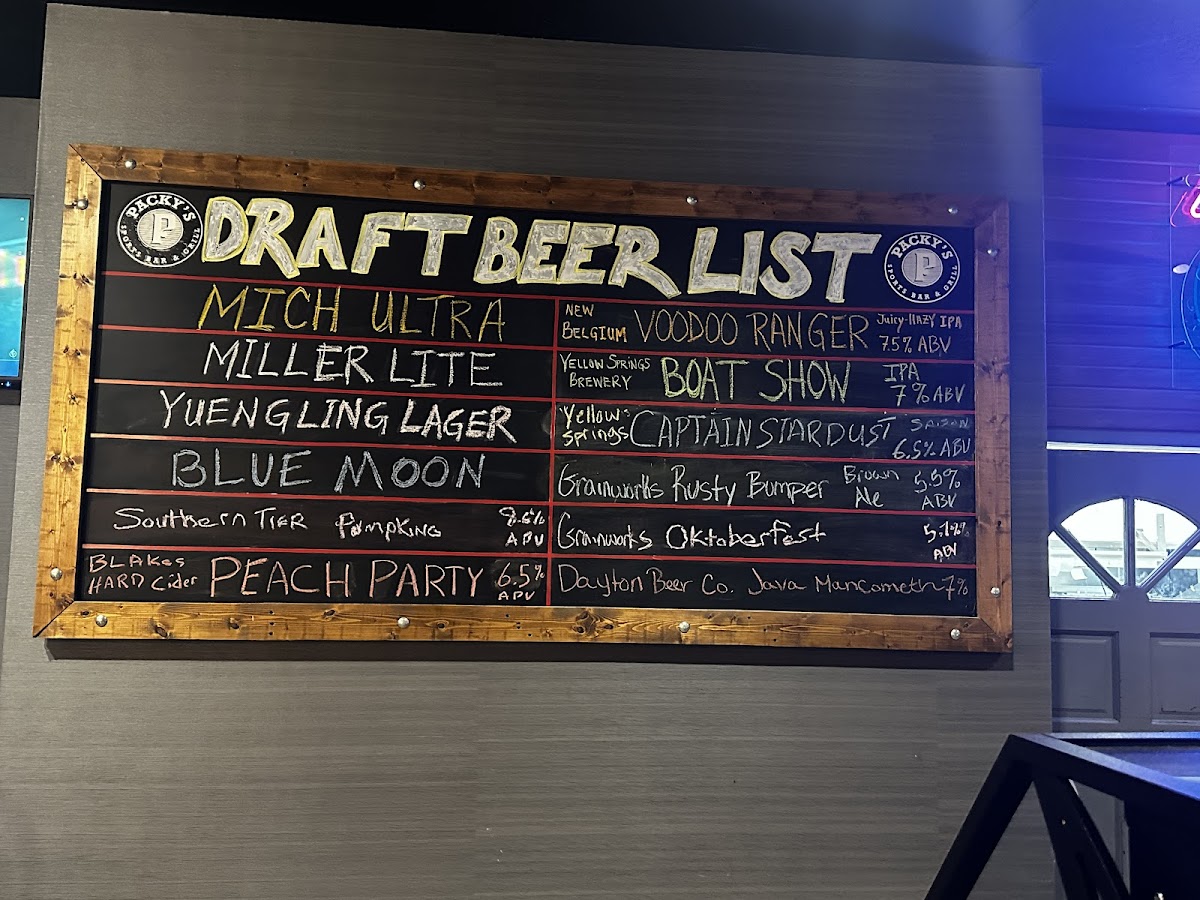 PACKY'S
SPORTS BAR & GRILL
P
DRAFT BEER LIST
PACKY'S
SPORTS BAR & GRILL
P
MICH ULTRA
MILLER LITE
YUENGLING LAGER
BLUE MOON
Southern TIER PUMPKING 8.6%
APV
BLAKES
HARD Cider PEACH PARTY 6.5%
APV
NEW
BELGIUM VOODOO RANGER Juicy-HAZY IPA
7.5% ABV
YELLOW SPRINGS
BREWERY BOAT SHOW IPA
7% ABV
Yellow
Springs CAPTAIN STARDUST SAISON
6.5% ABV
Grainworks Rusty Bumper Brown
Ale 5.5%
ABV
Grainworks Oktoberfest 5.1%
ABV
Dayton Beer Co. Java Mancometh 7%